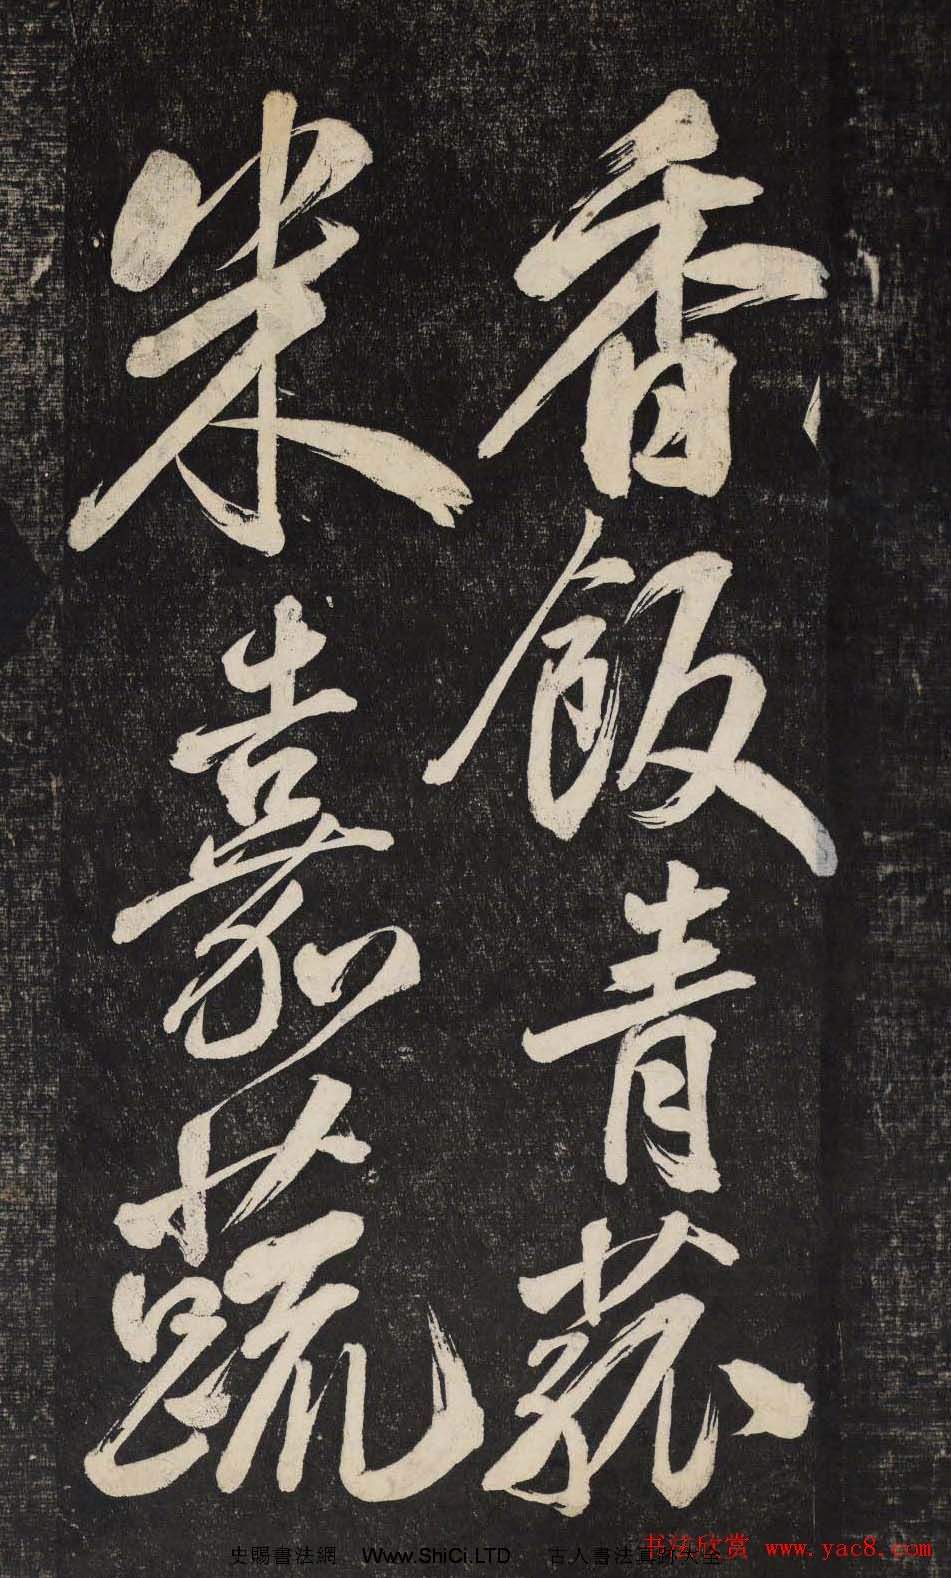 香飯青菰
米嘉蔬
史賜書法網 Www.ShiCi.LTD 古人書法真跡大全
书法欣赏 www.yac8.com